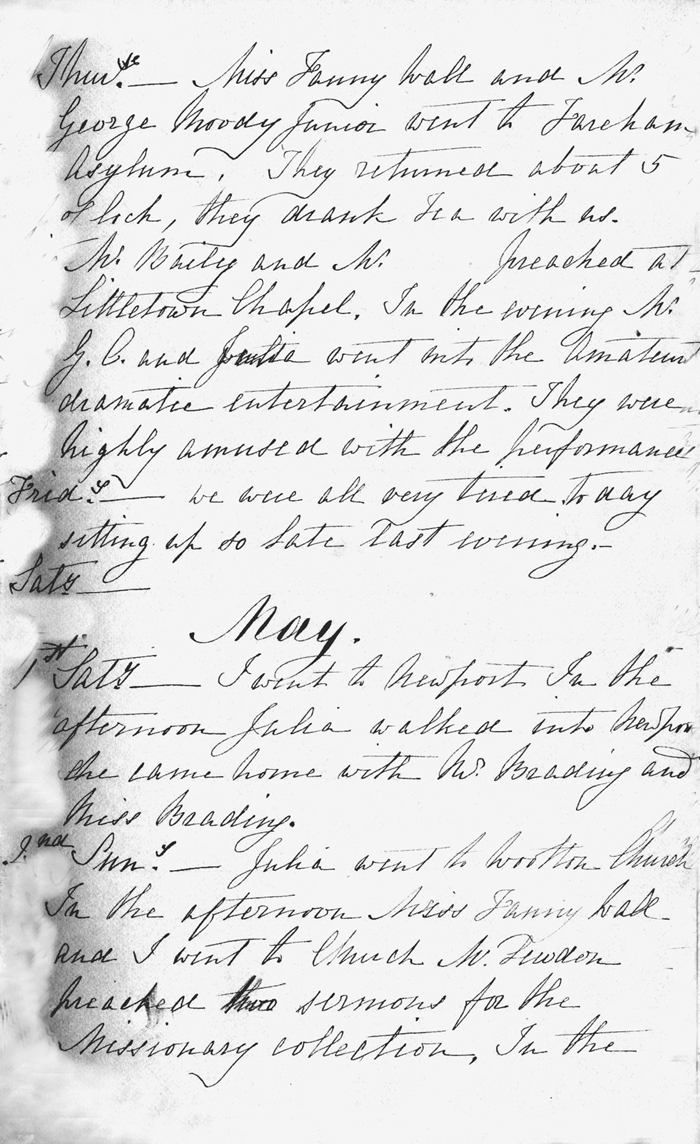 Thurs. — Miss Fanny Wall and Mr
George Moody Junior went to Fareham
Asylum. They returned about 5
o'Clock, they drank Tea with us.
Mr. Baily and Mr. preached at
Littletown Chapel. In the evening Mr.
G. C. and Julia went into the Amateur
dramatic entertainment. They were
highly amused with the performances
Frid.y — we were all very tired to day
sitting up so late last evening.—
Saty —
May.
1st Saty — I went to Newport In the
afternoon Julia walked into Newpor
she came home with Mr. Brading and
Miss Brading.
2nd Sun.y — Julia went to Wootton Church
In the afternoon Miss Fanny Wall
and I went to Church Mr.
preached two sermons for the
Missionary collection, In the